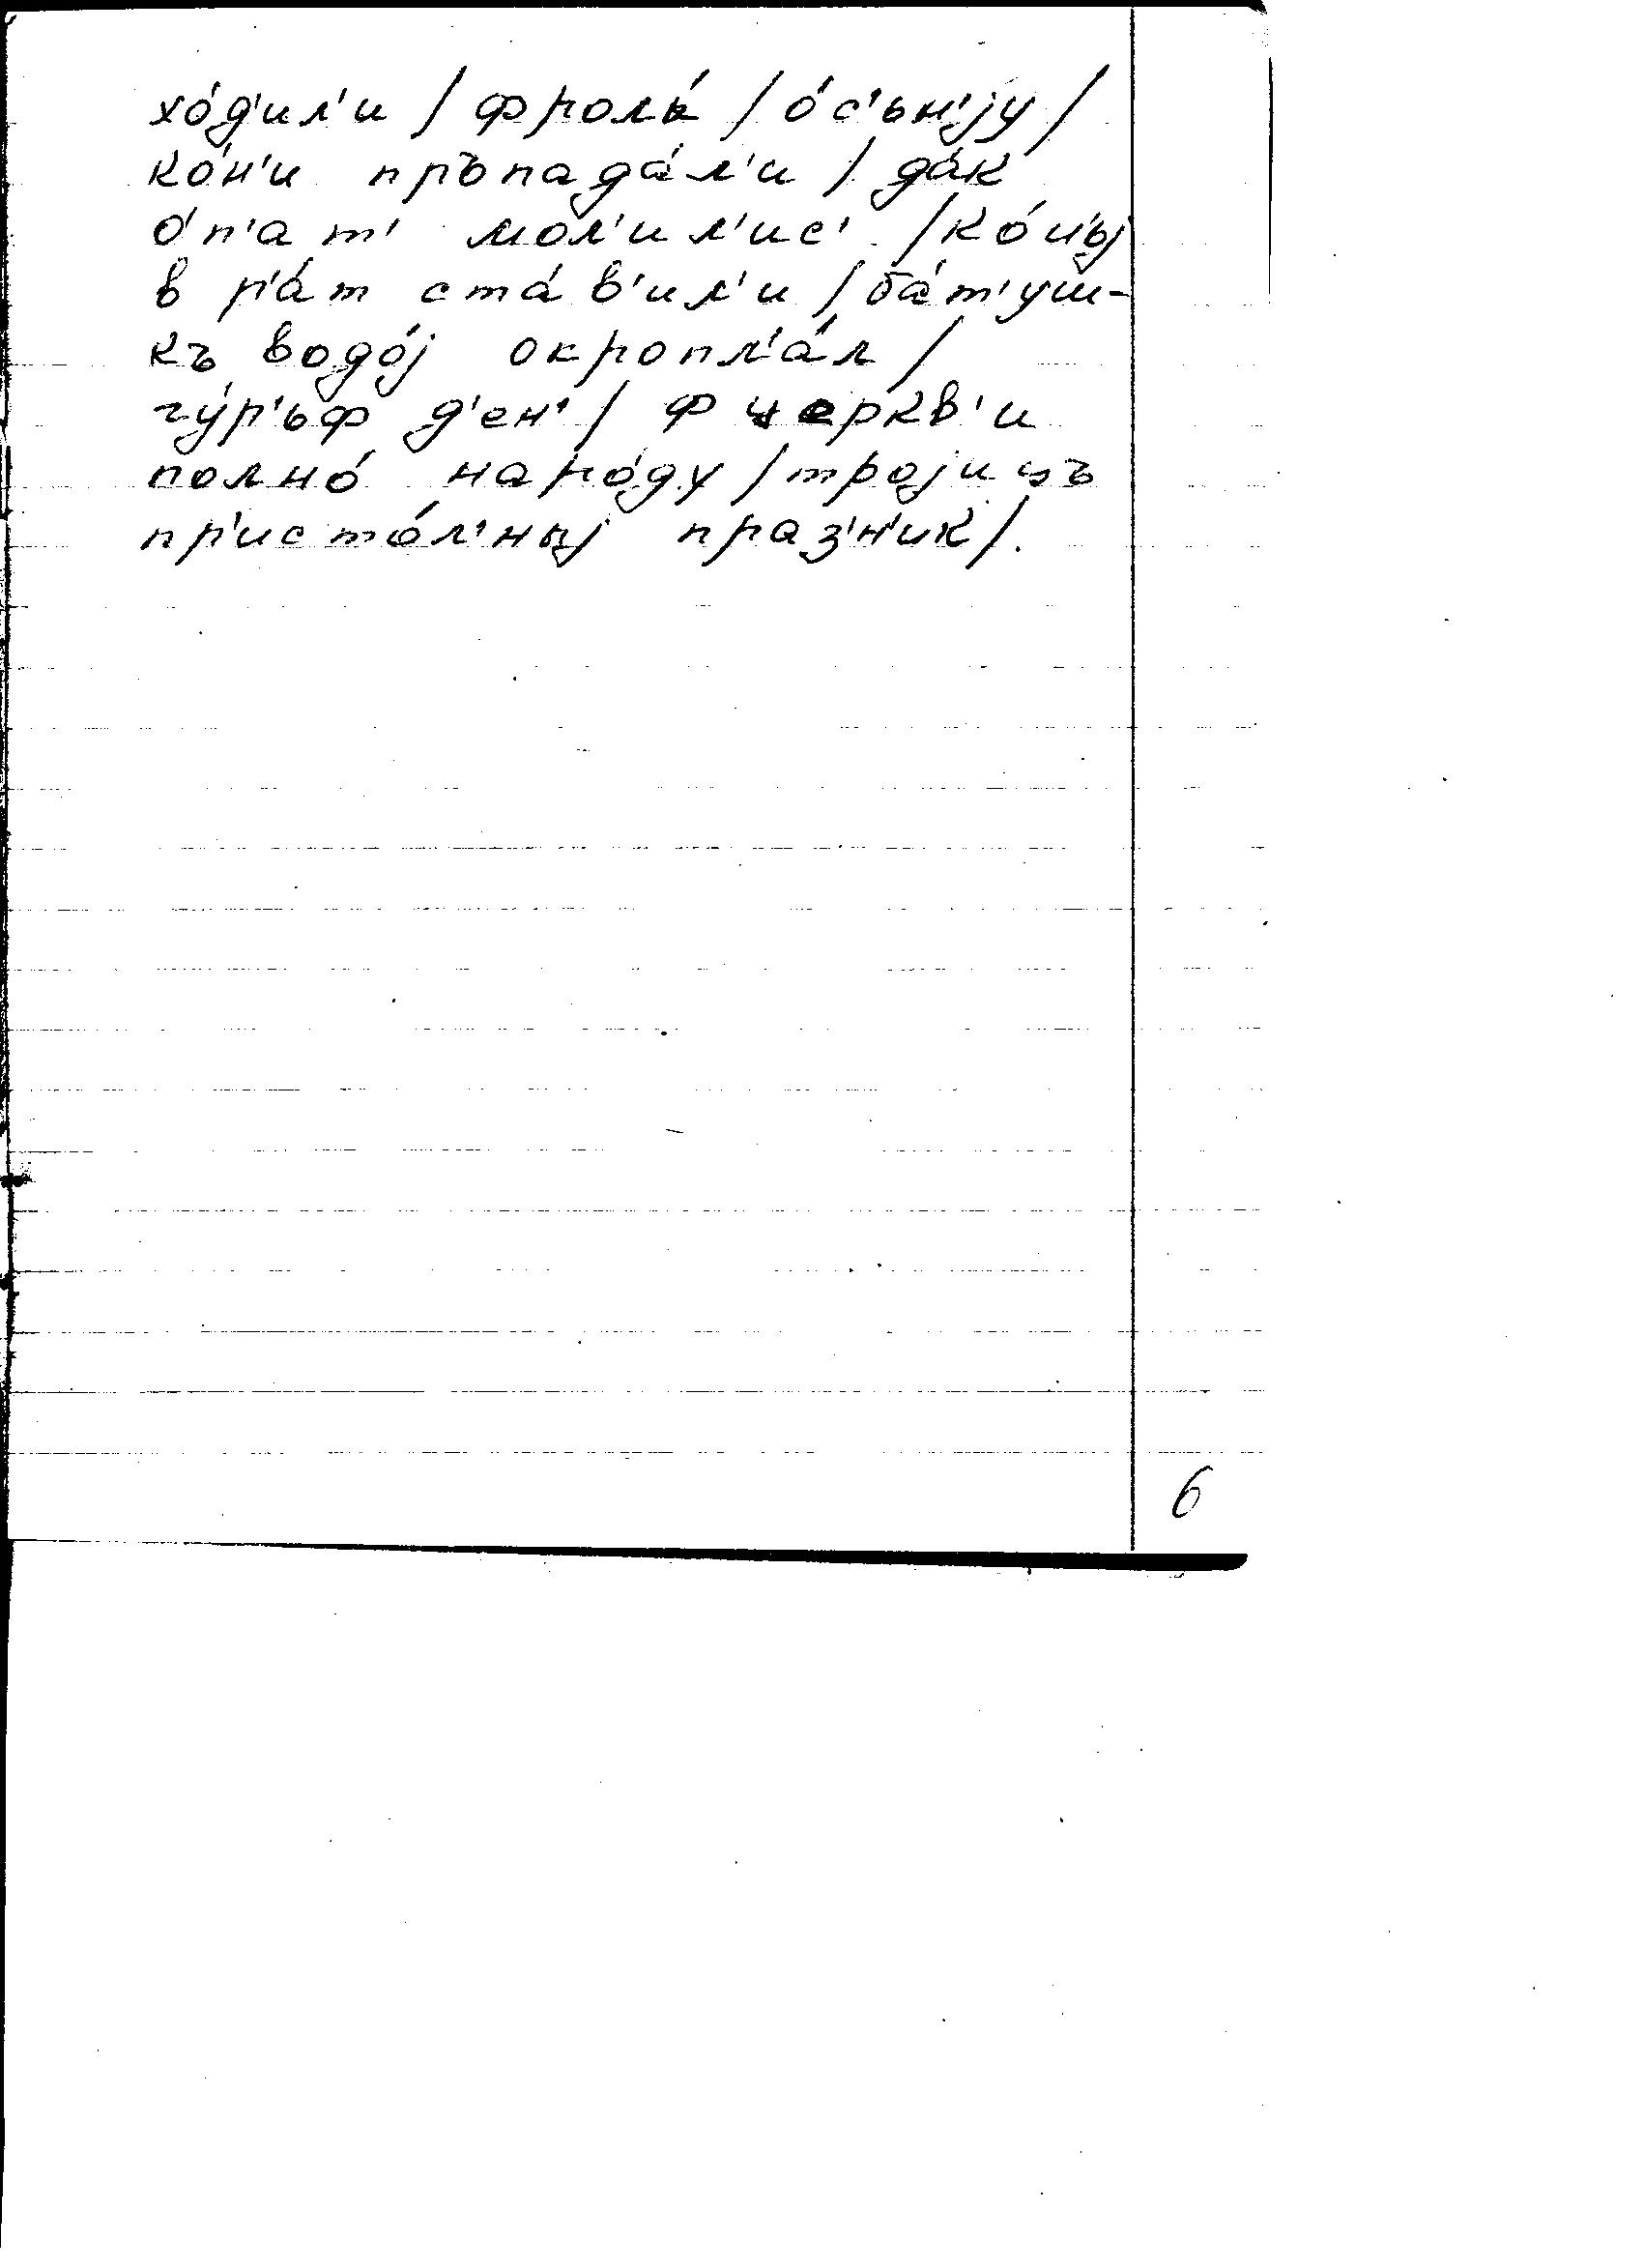 хо́д'ил'и / фрола́ / о́с'ьн'jу /
ко́н'и пръпада́л'и / да́к
о́п'ат' мол'ил'ис' / ко́н'ьj
в р'а́т ста́в'ил'и / ба́т'уш-
къ водо́j окропл'а́л /
гу́р'ьф д'ен' / ф церкв'и
полно́ наро́ду / троjицъ
пр'исто́л'ныj праз'н'ик /.
6